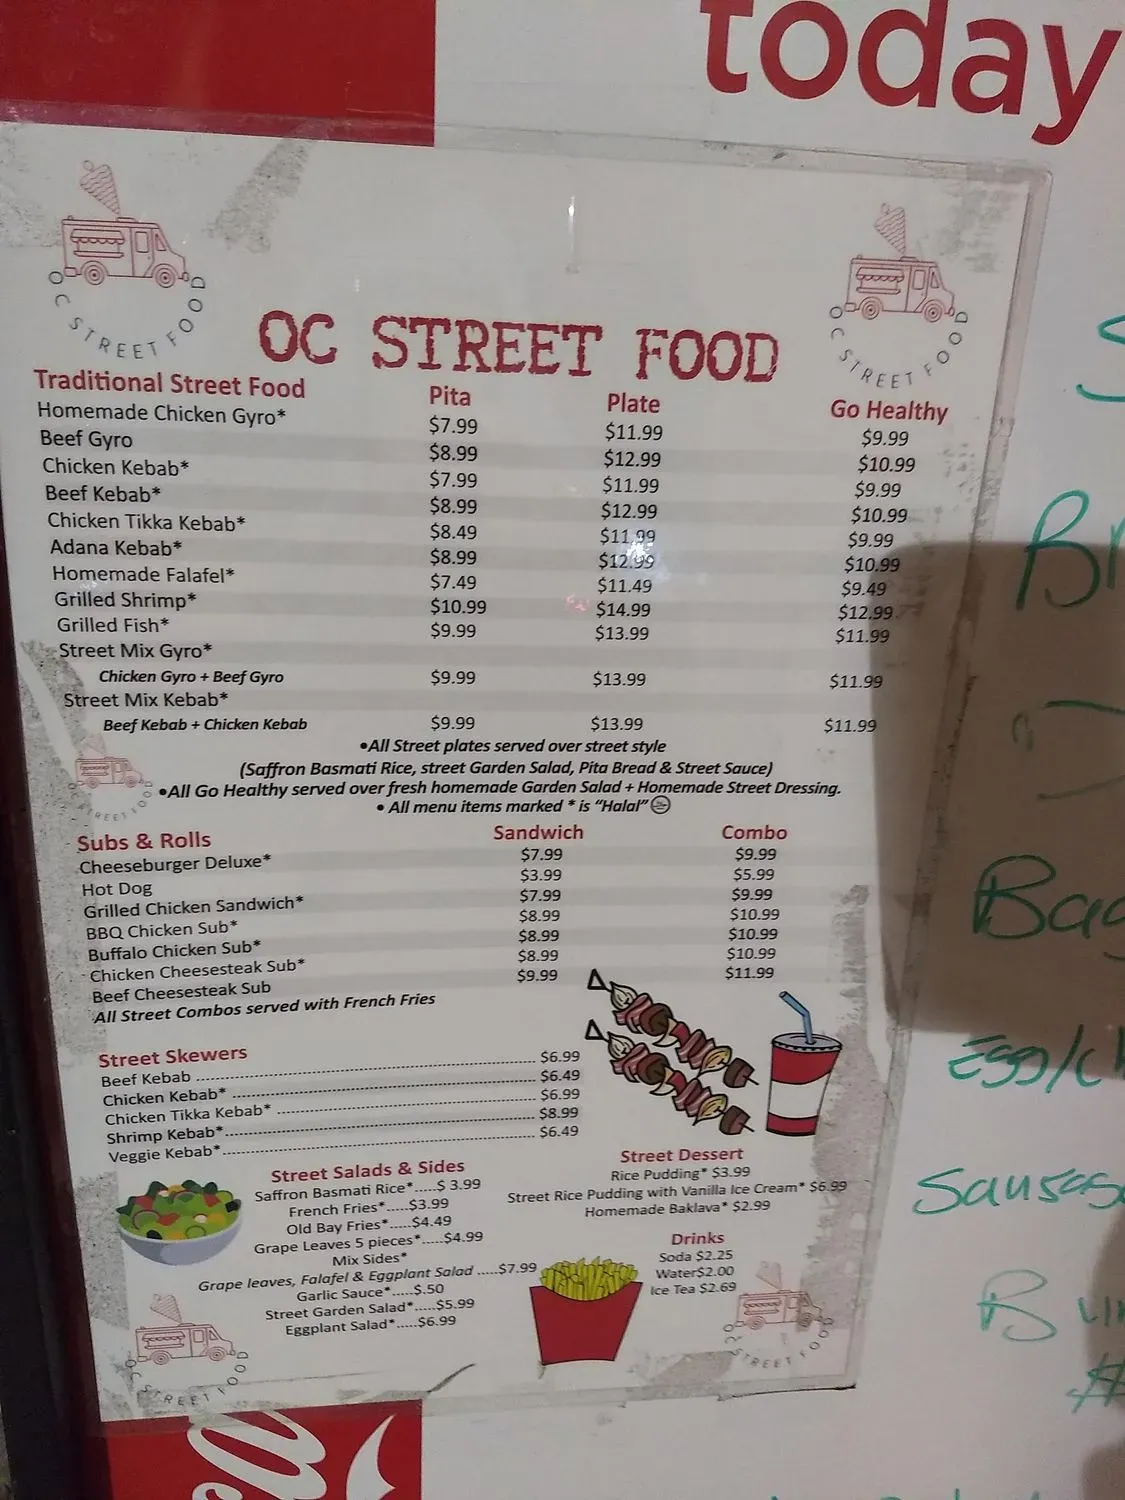 today
OC STREET FOOD
OC STREET FOOD
OC STREET FOOD
Traditional Street Food Pita Plate Go Healthy
Homemade Chicken Gyro* $7.99 $11.99 $9.99
Beef Gyro $8.99 $12.99 $10.99
Chicken Kebab* $7.99 $11.99 $9.99
Beef Kebab* $8.99 $12.99 $10.99
Chicken Tikka Kebab* $8.49 $11.99 $9.99
Adana Kebab* $8.99 $12.99 $10.99
Homemade Falafel* $7.49 $11.49 $9.49
Grilled Shrimp* $10.99 $14.99 $12.99
Grilled Fish* $9.99 $13.99 $11.99
Street Mix Gyro*
Chicken Gyro + Beef Gyro $9.99 $13.99 $11.99
Street Mix Kebab*
Beef Kebab + Chicken Kebab $9.99 $13.99 $11.99
•All Street plates served over street style
(Saffron Basmati Rice, street Garden Salad, Pita Bread & Street Sauce)
•All Go Healthy served over fresh homemade Garden Salad + Homemade Street Dressing.
• All menu items marked * is "Halal"
OC STREET FOOD
Subs & Rolls Sandwich Combo
Cheeseburger Deluxe* $7.99 $9.99
Hot Dog $3.99 $5.99
Grilled Chicken Sandwich* $7.99 $9.99
BBQ Chicken Sub* $8.99 $10.99
Buffalo Chicken Sub* $8.99 $10.99
Chicken Cheesesteak Sub* $8.99 $10.99
Beef Cheesesteak Sub $9.99 $11.99
All Street Combos served with French Fries
Street Skewers
Beef Kebab ........ $6.99
Chicken Kebab* ........ $6.49
Chicken Tikka Kebab* ........ $6.99
Shrimp Kebab* ........ $8.99
Veggie Kebab* ........ $6.49
Street Salads & Sides
Saffron Basmati Rice*.....$ 3.99
French Fries*.....$3.99
Old Bay Fries*.....$4.49
Grape Leaves 5 pieces*.....$4.99
Mix Sides*
Grape leaves, Falafel & Eggplant Salad .....$7.99
Garlic Sauce*.....$.50
Street Garden Salad*.....$5.99
Eggplant Salad*.....$6.99
Street Dessert
Rice Pudding* $3.99
Street Rice Pudding with Vanilla Ice Cream* $6.99
Homemade Baklava* $2.99
Drinks
Soda $2.25
Water$2.00
Ice Tea $2.69
OC STREET FOOD
OC STREET FOOD
Egg/